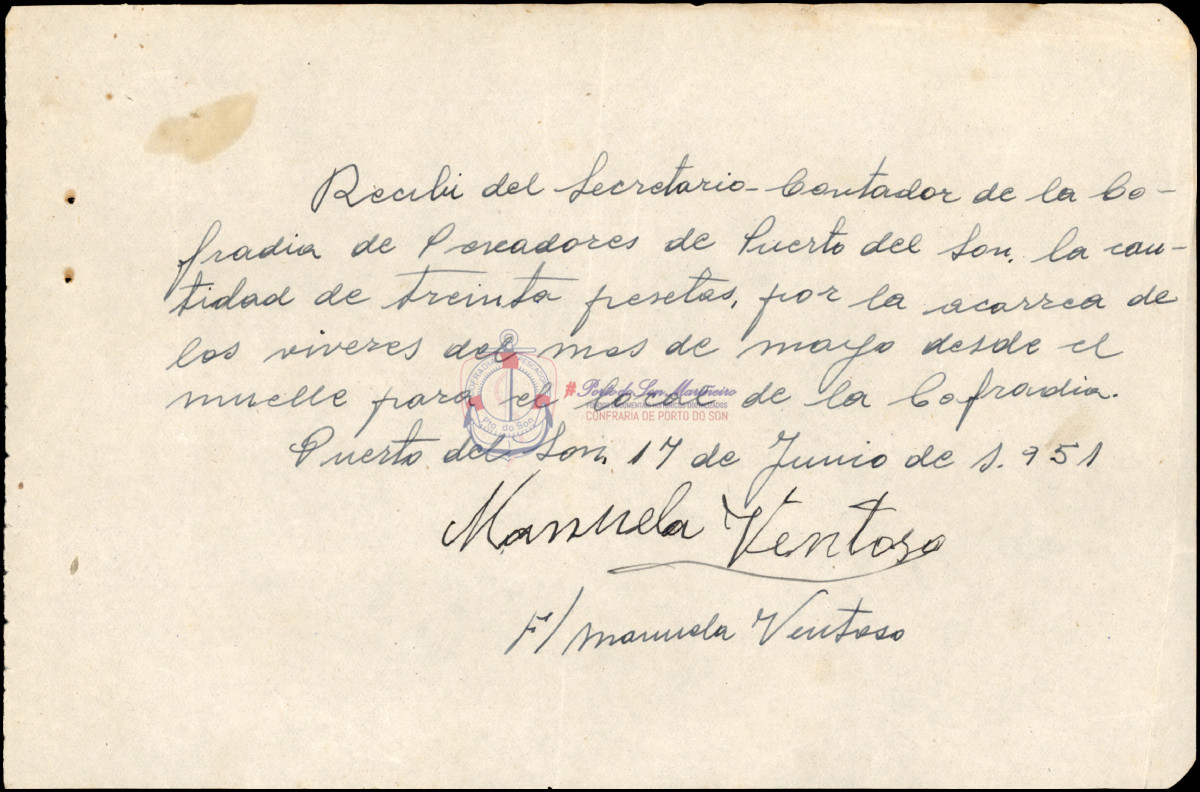 Recibi del Secretario-Contador de la Co-
fradia de Pescadores de Puerto del Son, la can-
tidad de treinta pesetas, por la acarrea de
los viveres del mes de mayo desde el
muelle para el local de la Cofradia.
Puerto del Son, 17 de Junio de 1.951
Manuela Ventoso
F/ Manuela Ventoso
Pto. do Son
#Porto do Son Mariñeiro
CONFRARIA DE PORTO DO SON